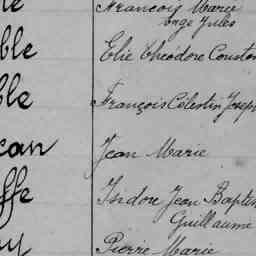 François Marie
Ange Jules
ble Elie Théodore Constan
ble François Célestin Joseph
ean Jean Marie
ffe Isidore Jean Baptis
Guillaume
y Pierre Marie